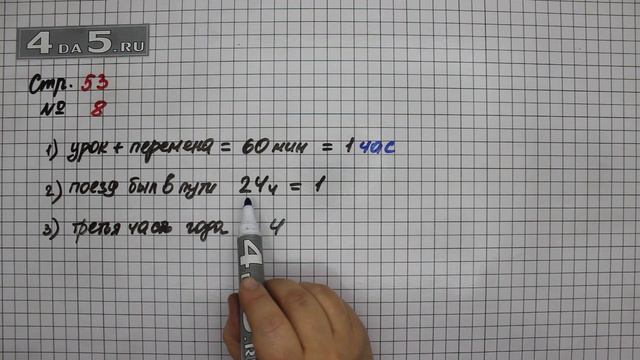 4 DA 5.RU
Стр. 53
№ 8
1) урок + перемена = 60 мин = 1 час
2) поезд был в пути 24 ч = 1
3) третья часть года 4
4
.RU